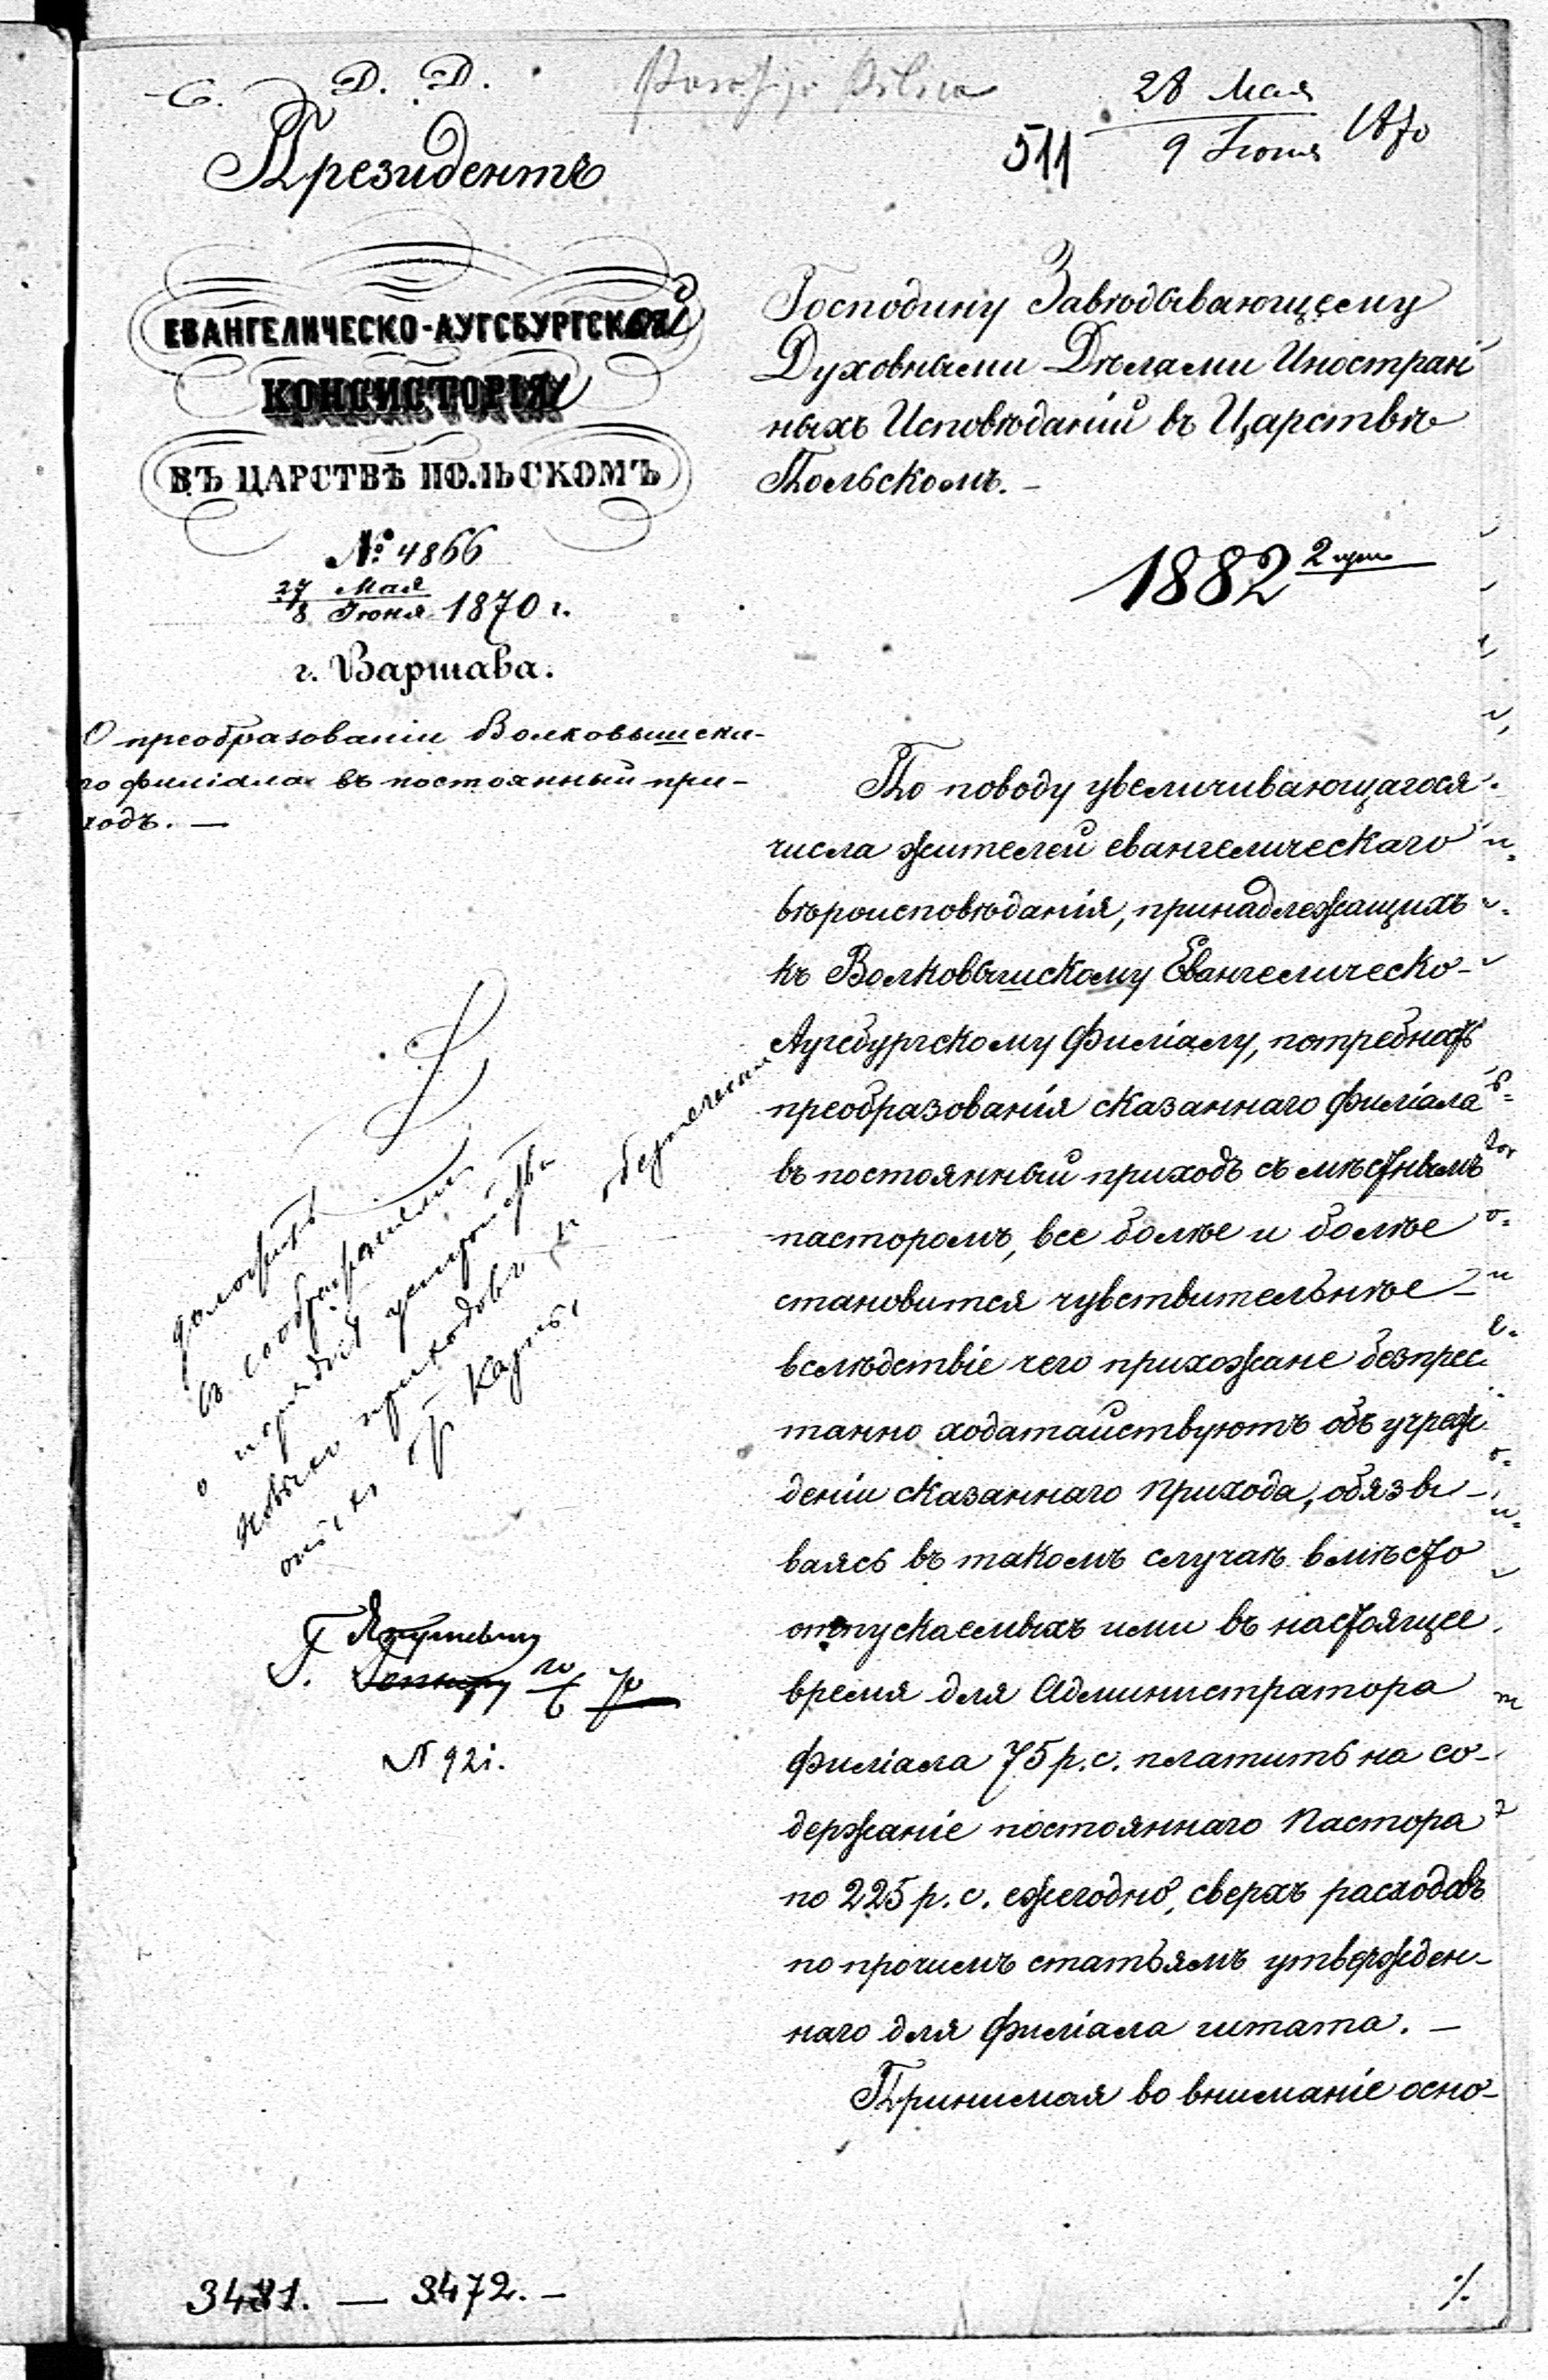 С. Д. Д.
Президентъ
ЕВАНГЕЛИЧЕСКО-АУГСБУРГСКОЙ
КОНСИСТОРІИ
ВЪ ЦАРСТВѢ ПОЛЬСКОМЪ
№ 4866
27 Мая
8 Июня 1870 г.
г. Варшава.
О преобразованіи Волковышска-
го филіала въ постоянный при-
ходъ. —
доложить
съ соображеніями
о порядкѣ устройства
новыхъ приходовъ
Г.
10/6 70
N 921.
3431. — 3472. —
28 Мая
9 Іюня 1870
511
Господину Завѣдывающему
Духовными Дѣлами Иностран
ныхъ Исповѣданій въ Царствѣ
Польскомъ. —
1882
По поводу увеличивающагося
числа жителей евангелическаго
вѣроисповѣданія, принадлежащихъ
къ Волковышскому Евангелическо-
Аугсбургскому Филіалу, потребность
преобразованія сказаннаго Филіала
въ постоянный приходъ съ мѣстнымъ
пасторомъ, все болѣе и болѣе
становится чувствительнѣе —
вслѣдствіе чего прихожане безпрес
танно ходатайствуютъ объ учреж
деніи сказаннаго прихода, обязы-
ваясь въ такомъ случаѣ вмѣсто
отпускаемыхъ ими въ настоящее
время для Администратора
Филіала 75 р. с. платить на со-
держаніе постояннаго Пастора
по 225 р. с. ежегодно, сверхъ расходовъ
по прочимъ статьямъ утвержден-
наго для Филіала штата. —
Принимая во вниманіе осно-